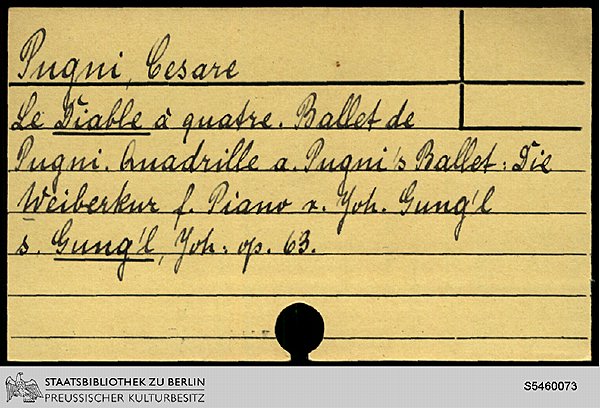 Pugni, Cesare
Le Diable à quatre. Ballet de
Pugni. Quadrille a. Pugni's Ballet: Die
Weiberkur f. Piano v. Joh. Gung'l
s. Gung'l, Joh: op. 63.
STAATSBIBLIOTHEK ZU BERLIN
PREUSSISCHER KULTURBESITZ
S5460073